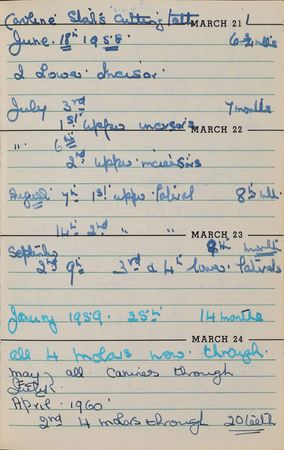 Caroline Stal's Cutting teeth MARCH 21
June 18th 1958 6½ mths
2 Lower Incisor
July 3rd 7 months
1st upper incisors MARCH 22
" 6th
2nd upper incisors
August 7th 1st upper lateral 8½ mth
14th 2nd " "
MARCH 23
September 9th month
2nd 9th 3rd & 4th lower laterals
January 1959. 25th 14 months
MARCH 24
all 4 molars now through.
May all canines through
July
April 1960
2nd 4 molars through 20 teeth